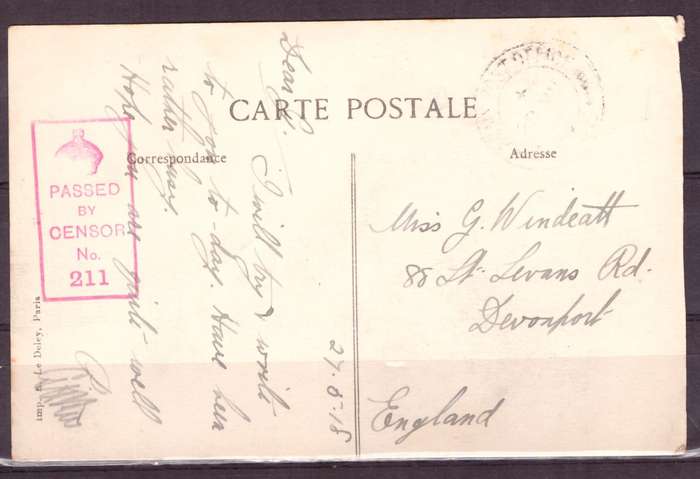 CARTE POSTALE
Correspondance
Adresse
PASSED
BY
CENSOR
No.
211
Dear G.
I will try & write
to you to-day. Have been
rather busy.
Hope you are quite well
P.
27-8-18
Miss G. Windeatt
88 St. Levans Rd.
Devonport
England
Imp. E. Le Deley, Paris